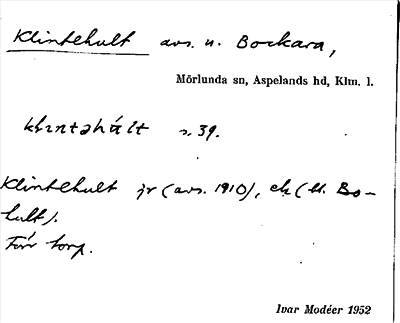 Klintehult avs. u. Bockara,
Mörlunda sn, Aspelands hd, Klm. l.
klintəhúlt s. 39.
Klintehult jr (avs. 1910), ek (st. Bo-
hult).
Förr torp.
Ivar Modéer 1952